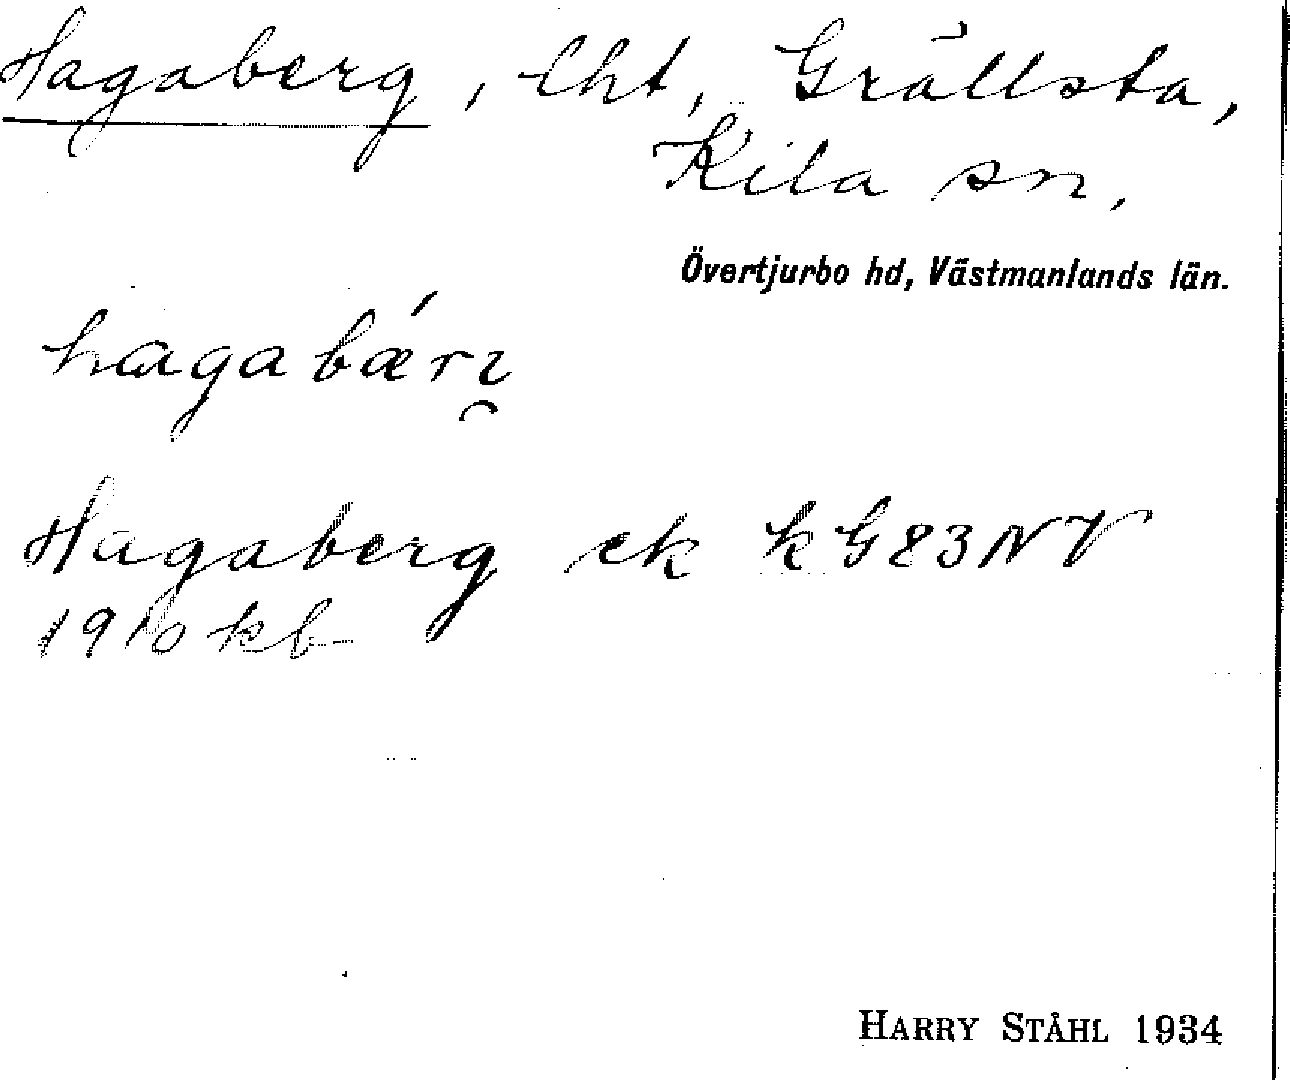 Hagaberg, lht, Grällsta,
Kila sn.
Övertjurbo hd, Västmanlands län.
hagabǽrı̯
Hagaberg ek k G83NV
1910 kb
HARRY STÅHL 1934